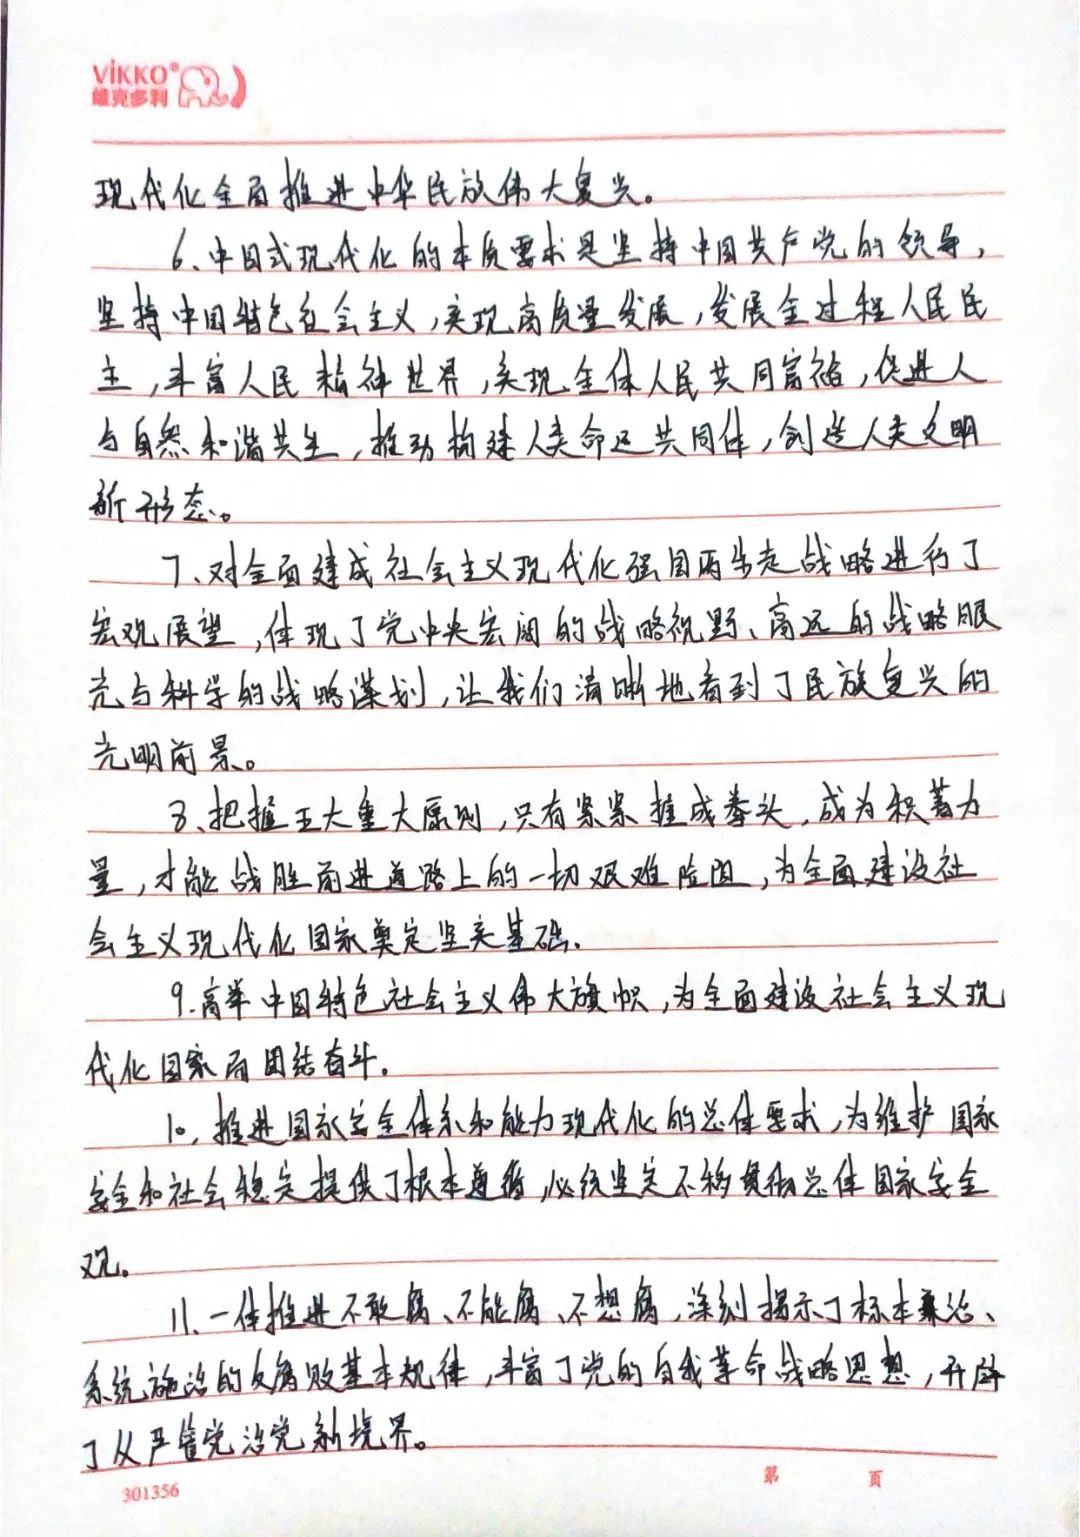 VIKKO®
维克多利
现代化全局推进中华民族伟大复兴。
6、中国式现代化的本质要求是坚持中国共产党的领导，
坚持中国特色社会主义，实现高质量发展，发展全过程人民民
主，丰富人民精神世界，实现全体人民共同富裕，促进人
与自然和谐共生，推动构建人类命运共同体，创造人类文明
新形态。
7、对全面建成社会主义现代化强国两步走战略进行了
宏观展望，体现了党中央宏阔的战略视野、高远的战略眼
光与科学的战略谋划，让我们清晰地看到了民族复兴的
光明前景。
8、把握五大重大原则，只有紧紧握成拳头，成为积蓄力
量，才能战胜前进道路上的一切艰难险阻，为全面建设社
会主义现代化国家奠定坚实基础.
9.高举中国特色社会主义伟大旗帜，为全面建设社会主义现
代化国家而团结奋斗.
10，推进国家安全体系和能力现代化的总体要求，为维护国家
安全和社会稳定提供了根本遵循，必须坚定不移贯彻总体国家安全
观.
11.一体推进不敢腐、不能腐、不想腐，深刻揭示了标本兼治、
系统施治的反腐败基本规律，丰富了党的自我革命战略思想，开辟
了从严管党治党新境界。
301356 第 页